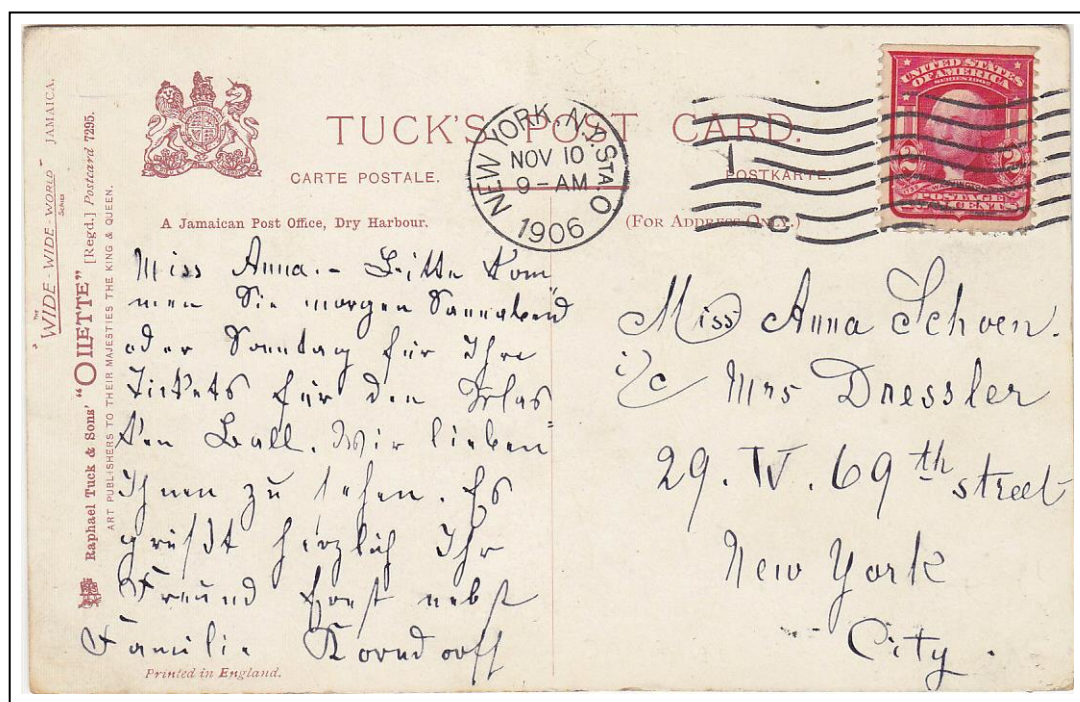 "THE WIDE-WIDE-WORLD" SERIES JAMAICA.
Raphael Tuck & Sons' "OILETTE" [Regd.] Postcard 7295.
ART PUBLISHERS TO THEIR MAJESTIES THE KING & QUEEN.
TUCK'S POST CARD.
CARTE POSTALE.
POSTKARTE.
NEW YORK, N.Y. STA. O
NOV 10
9-AM
1906
UNITED STATES
OF AMERICA
SERIES 1902
POSTAGE
2 CENTS 2
A Jamaican Post Office, Dry Harbour.
(FOR ADDRESS ONLY.)
Miss Anna.- Bitte kom
men Sie morgen Sonnabend
oder Sonntag für Ihre
Tickets für den
Ball. Wir lieben
Ihnen zu sehen. Es
grüßt herzlich Ihr
Freund Ernst nebst
Familie Korndorff
Printed in England.
Miss Anna Schoen.
c Mrs Dressler
29. W. 69th street
New York
City.